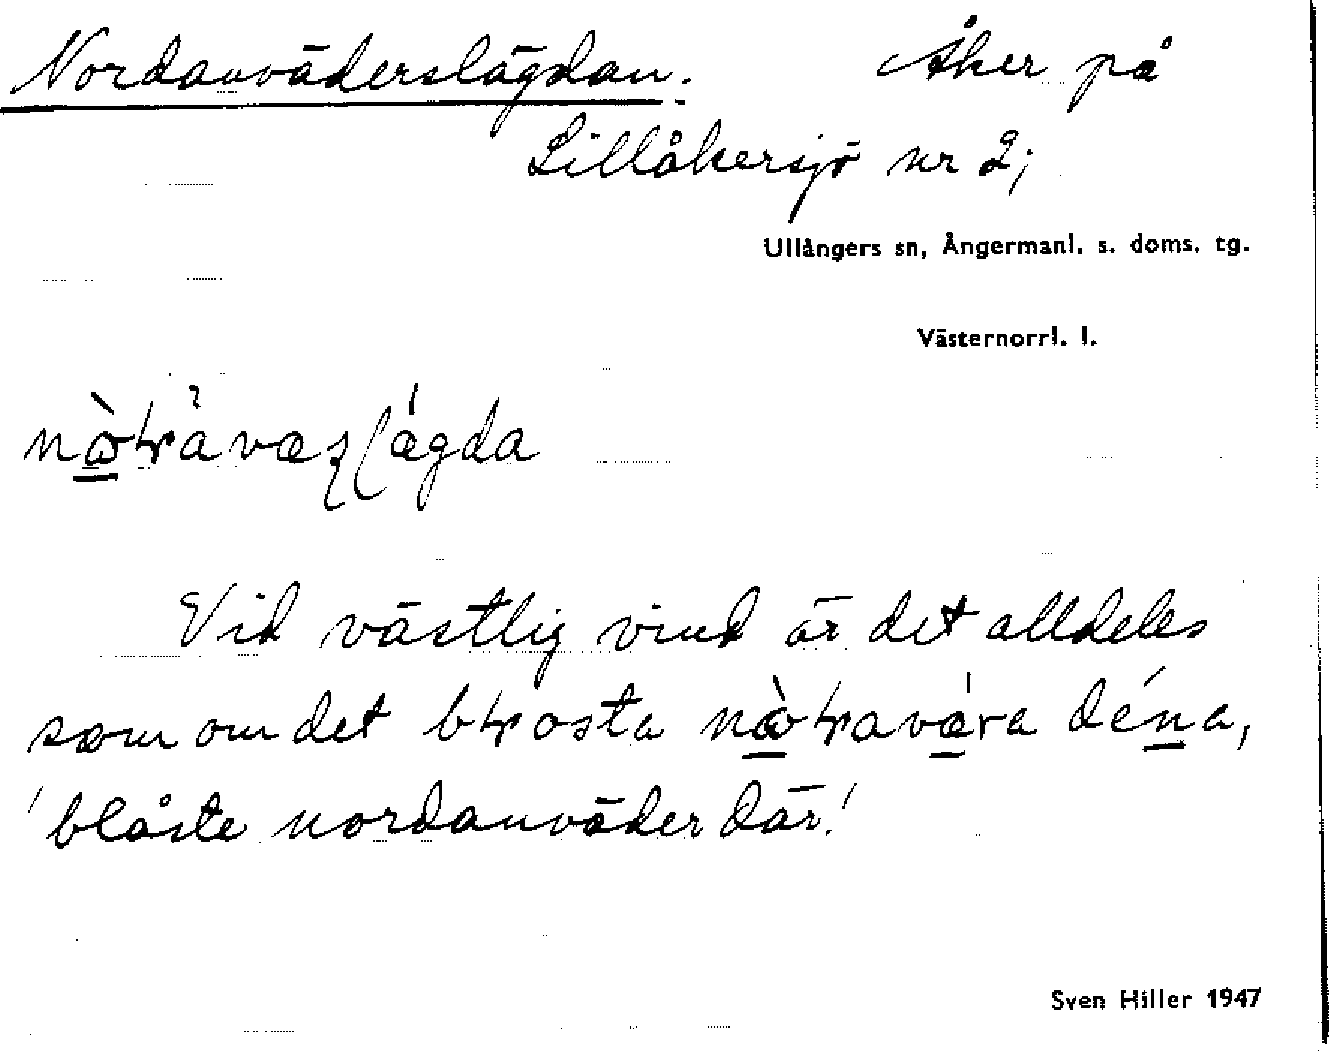 Nordanväderslägdan. Åker på
Lillåkersjö nr 2;
Ullångers sn, Ångermanl. s. doms. tg.
Västernorrl. l.
Vid västlig vind är det alldeles
som om det
'blåste nordanväder där.'
Sven Hiller 1947